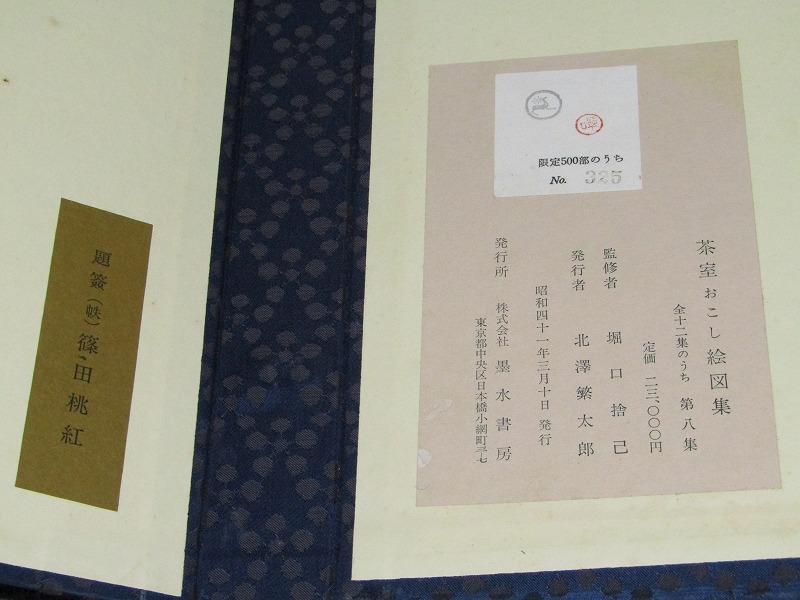 限定500部のうち
No. 325
茶室おこし絵図集
全十二集のうち 第八集
定価 二三、〇〇〇円
監修者 堀口捨己
発行者 北澤繁太郎
昭和四十一年三月十日 発行
発行所 株式会社 墨水書房
東京都中央区日本橋小網町三ノ七
題簽(帙)篠田桃紅